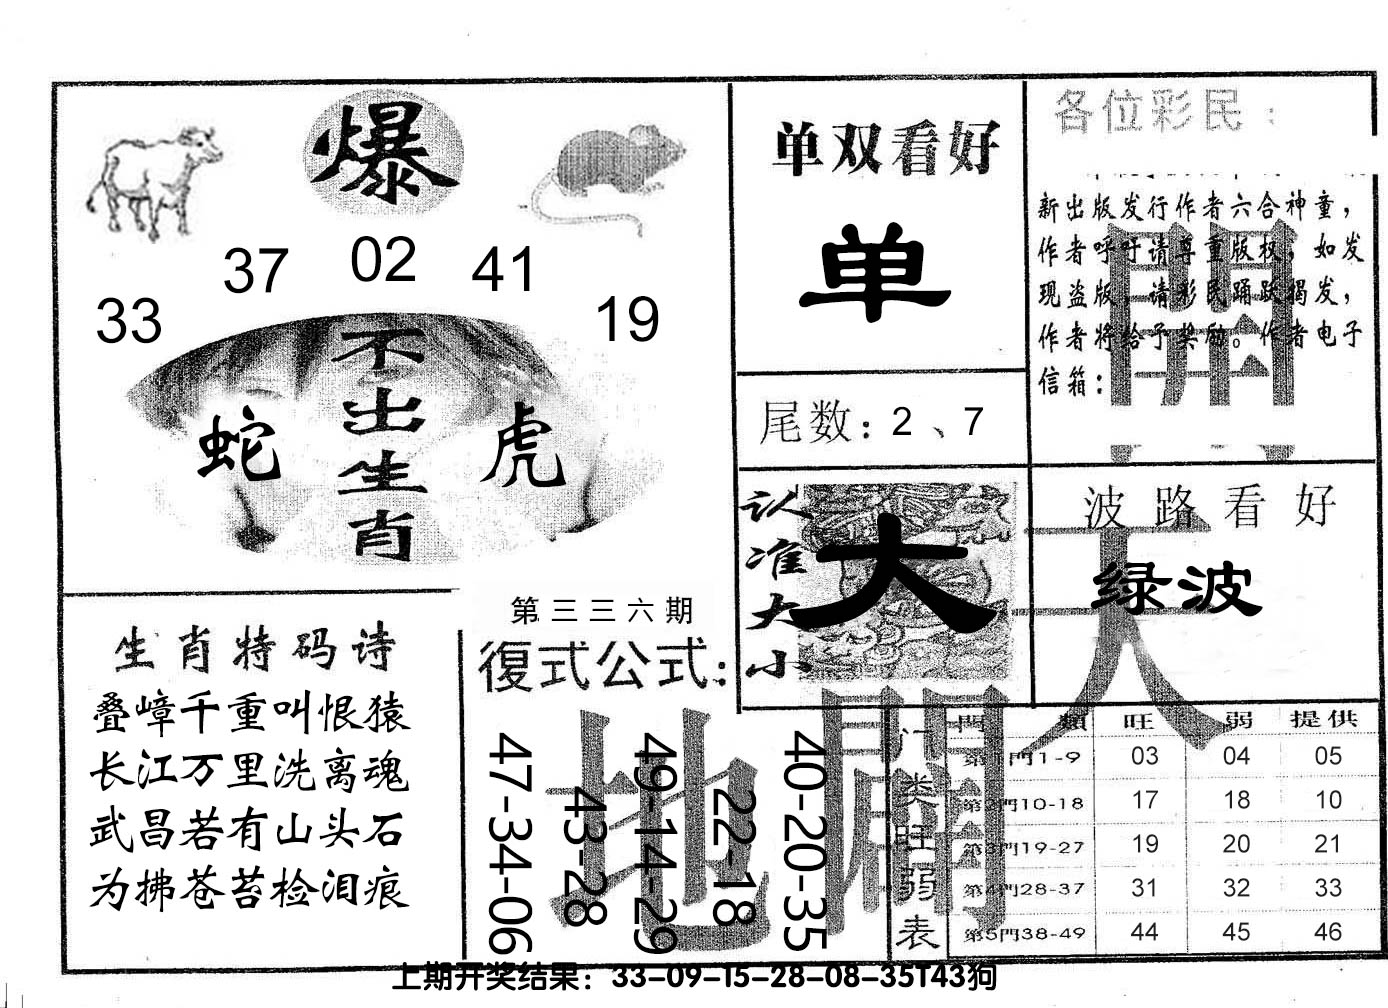 爆
37 02 41
33 19
不出生肖
蛇 虎
单双看好
单
尾数：2、7
各位彩民：
新出版发行作者六合神童，
作者呼吁请尊重版权，如发
现盗版，请彩民踊跃揭发，
作者将给予奖励。作者电子
信箱：
開
认准大小
大
波路看好
绿波
天
生肖特码诗
叠嶂千重叫恨猿
长江万里洗离魂
武昌若有山头石
为拂苍苔检泪痕
第三三六期
復式公式：
47-34-06
43-28
49-14-29
22-18
40-20-35
地
閘
门类旺弱表
門類 旺 弱 提供
第1門1-9 03 04 05
第2門10-18 17 18 10
第3門19-27 19 20 21
第4門28-37 31 32 33
第5門38-49 44 45 46
上期开奖结果：33-09-15-28-08-35T43狗